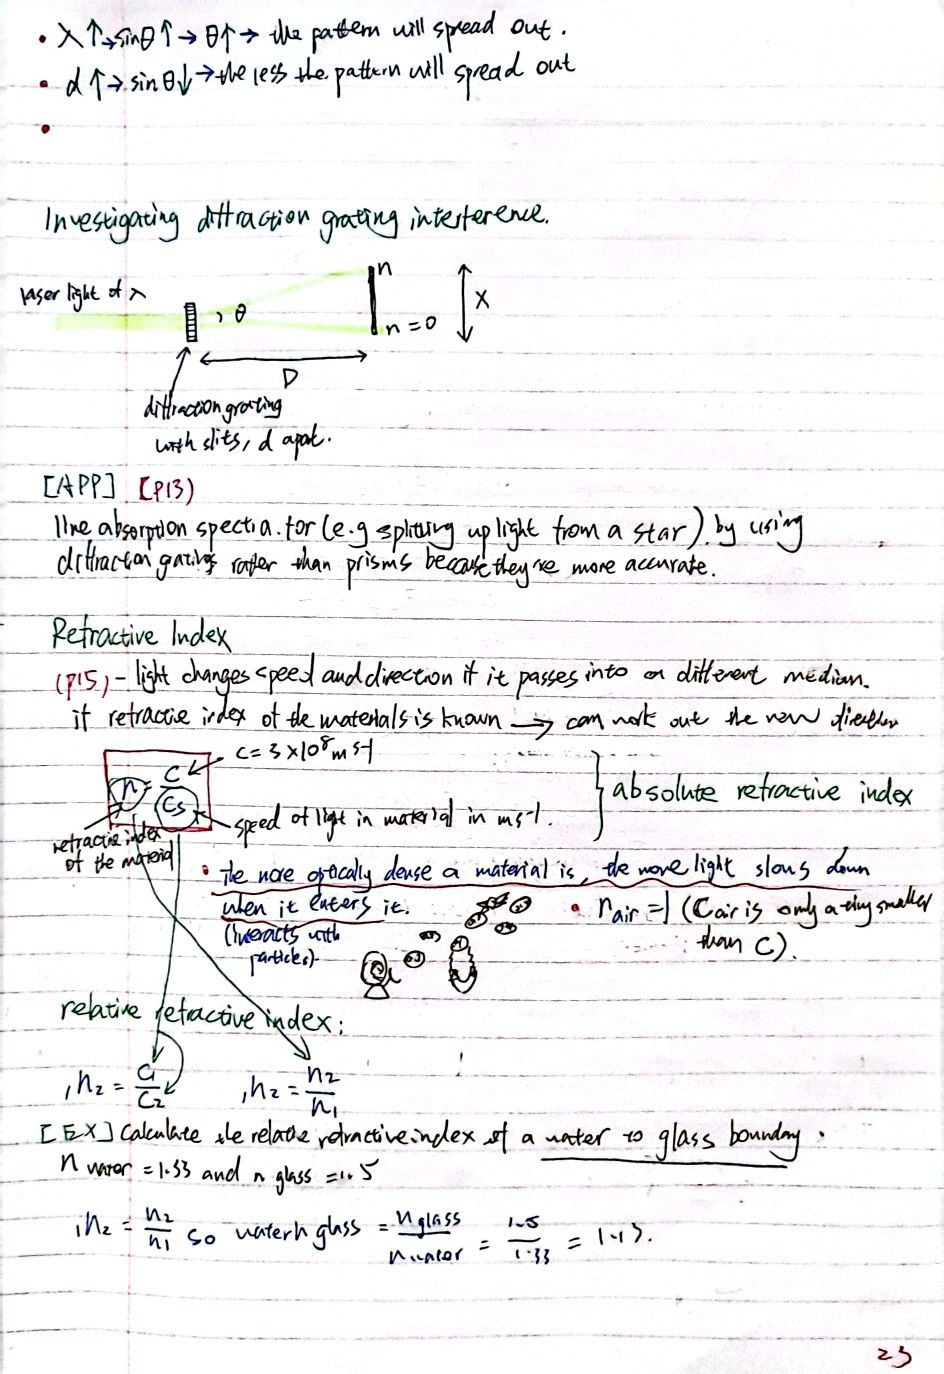 • λ↑→sinθ↑→ θ↑→ the pattern will spread out.
• d↑→sinθ↓→the less the pattern will spread out
•
Investigating diffraction grating interference.
laser light of λ
θ
n
n=0
X
D
diffraction grating
with slits, d apart.
[APP] [P13)
line absorption spectra. for (e.g splitting up light from a star). by using
diffraction gratings rather than prisms because they're more accurate.
Refractive Index
(P15) - light changes speed and direction if it passes into a different medium.
if refractive index of the materials is known → can work out the new direction
c = 3×10⁸ms-1
n = c/cs
speed of light in material in ms-1.
absolute refractive index
retractive index
of the material
• The more optically dense a material is, the more light slows down
when it enters it.
(interacts with
particles).
• nair =1 (Cair is only a tiny smaller
than C).
relative refractive index:
₁n₂ = C₁/C₂ ₁n₂ = n₂/n₁
[EX] Calculate the relative refractive index of a water to glass boundary.
n water = 1.33 and n glass = 1.5
₁n₂ = n₂/n₁ so water n glass = n glass/n water = 1.5/1.33 = 1.13.
23